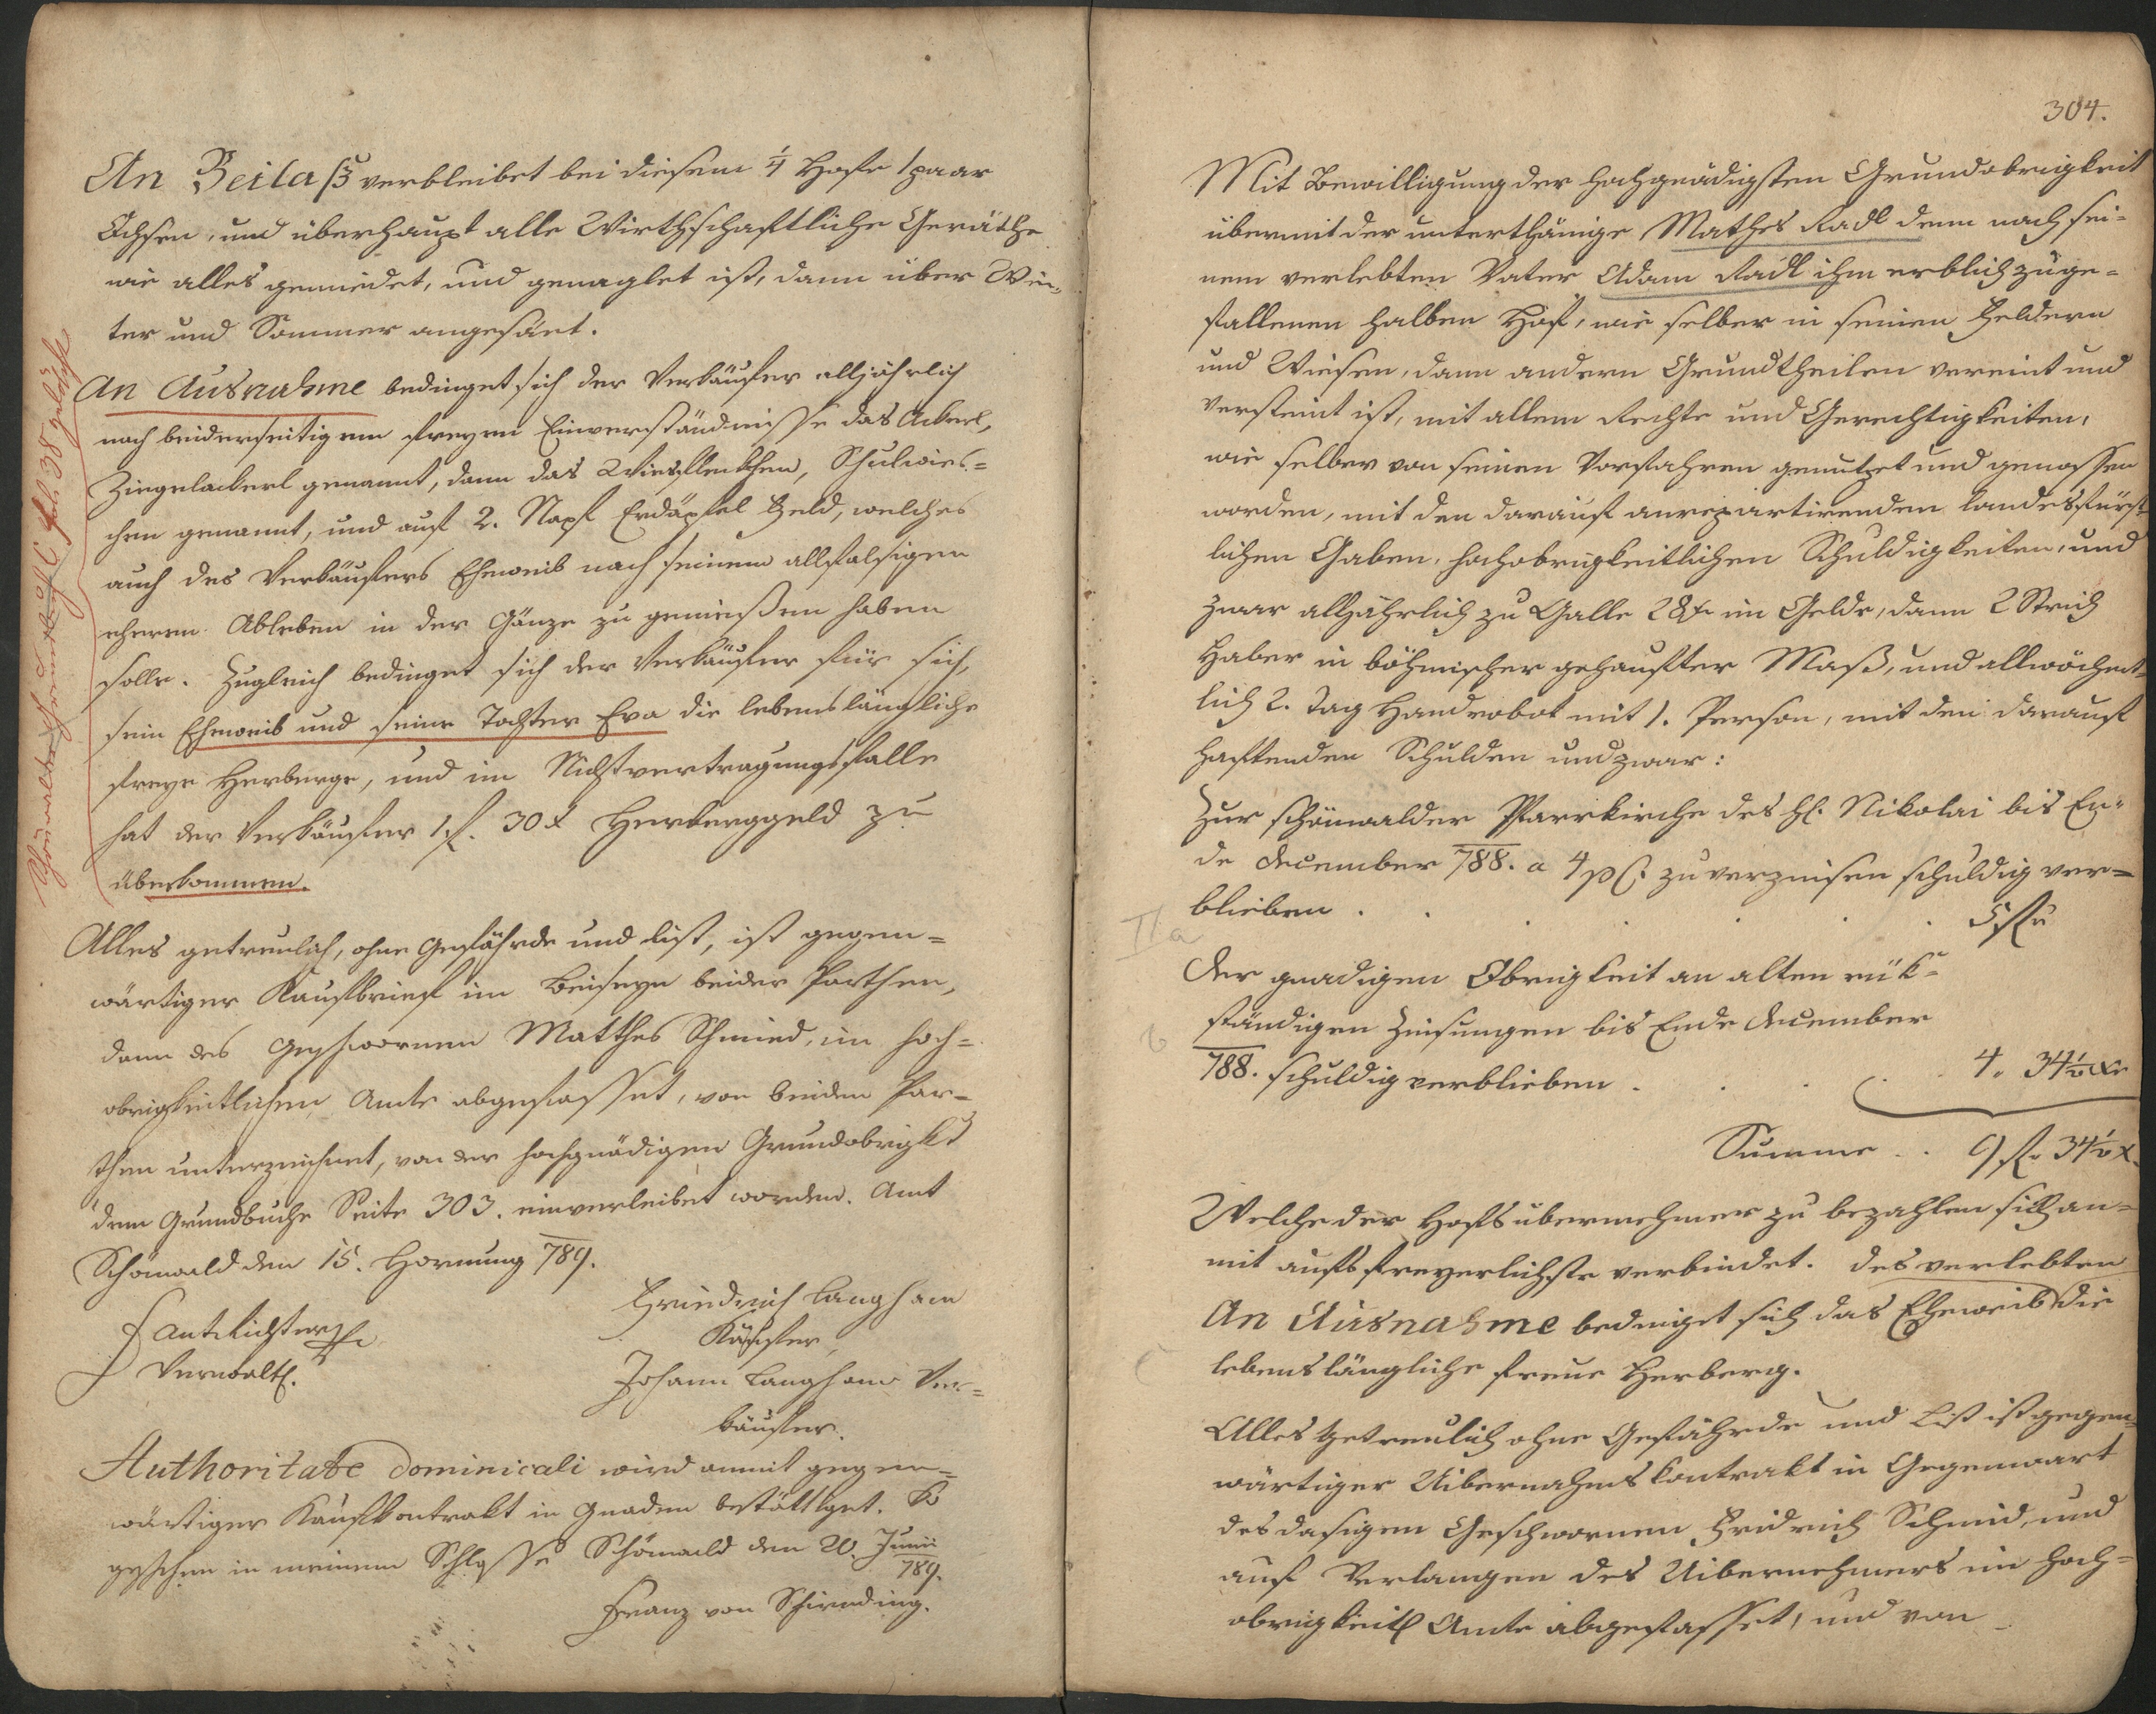 An Beilaß verbleibet bei diesem 1/4 Hofe 1 paar
Ochsen, und überhaupt alle Wirthschaftliche Geräthe
wie alles geniedet, und genaglet ist, dann über Win-
ter und Sommer angesäet.
An Ausnahme bedinget sich der Verkäufer alljährlich
nach beiderseitigem freyem Einverständnisse das Ackerl,
Ziegelackerl genannt, dann das Wiesfleckchen, Schulwies-
chen genannt, und auf 2. Napf Erdäpfel Feld, welches
auch des Verkäufers Eheweib nach seinem allfalsigen
eherem Ableben in der Gänze zu genießen haben
solle. Zugleich bedinget sich der Verkäufer für sich,
sein Eheweib und seine Tochter Eva die lebenslängliche
freye Herberge, und im Nichtvertragungsfalle
hat der Verkäufer 1 f. 30 x Herberggeld zu
überkommen.
Alles getreulich, ohne Gefährde und List, ist gegen-
wärtiger Kaufbrief im Beiseyn beider Parthen,
dann des Geschwornen Matthes Schmied, im hoch-
obrigkeitlichen Amte abgefasset, von beiden Par-
then unterzeichnet, von der hochgnädigen Grundobrigkt
dem Grundbuche Seite 303. einverleibet worden. Amt
Schönwald den 15. Hornung 789.
Friedrich Langham
Käufer,
Verwalt.
Johann Langham Ver-
käufer.
Authoritate Dominicali wird anmit gegen-
wärtiger Kaufkontrakt in Gnaden bestättiget. So
geschehen in meinem Schlosse Schönwald den 20. Junii
789.
Franz von Schirnding.
fol. 38 gelöscht
304.
Mit Bewilligung der hochgnädigsten Grundobrigkeit
übernimt der unterthänige Mathes Radl denn nach sei-
nem verlebten Vater Adam Radl ihm erblich zuge-
fallenen halben Hof, wie selber in seinen Feldern
und Wiesen, dann andern Grundtheilen vereint und
versteint ist, mit allem Rechte und Gerechtigkeiten,
wie selber von seinen Vorfahren genutzet und genossen
worden, mit den darauf anrepartirenden landesfürst-
lichen Gaben, hochobrigkeitlichen Schuldigkeiten, und
zwar alljährlich zu Galle 28 x im Gelde, dann 2 Strich
Haber in böhmischer gehaufter Maß, und allwöchent-
lich 2. Tag Handrobot mit 1. Person, mit den darauf
haftenden Schulden und zwar:
Zur schönwalder Pfarrkirche des hl. Nikolai bis En-
de December 788. a 4 p C. zu verzinsen schuldig ver-
blieben . . . . . . 5 f
II a
Der gnadigen Obrigkeit an alten rük-
ständigen Zinsungen bis Ende December
b
788. schuldig verblieben . . . . 4. 34 1/2 xr
Summe . . 9 f. 34 1/2 x.
Welche der Hofsübernehmer zu bezahlen sich an-
mit aufs freyerlichste verbindet. des verlebten
An Ausnahme bedinget sich das Eheweib die
c
lebenslängliche freue Herberg.
Alles getreulich ohne Gefährde und List ist gegen-
wärtiger Uibernahmskontrakt in Gegenwart
des dasigen Geschwornen Fridrich Schmid, und
auf Verlangen des Uibernehmers im hoch-
obrigkeitl Amte abgefasset, und von